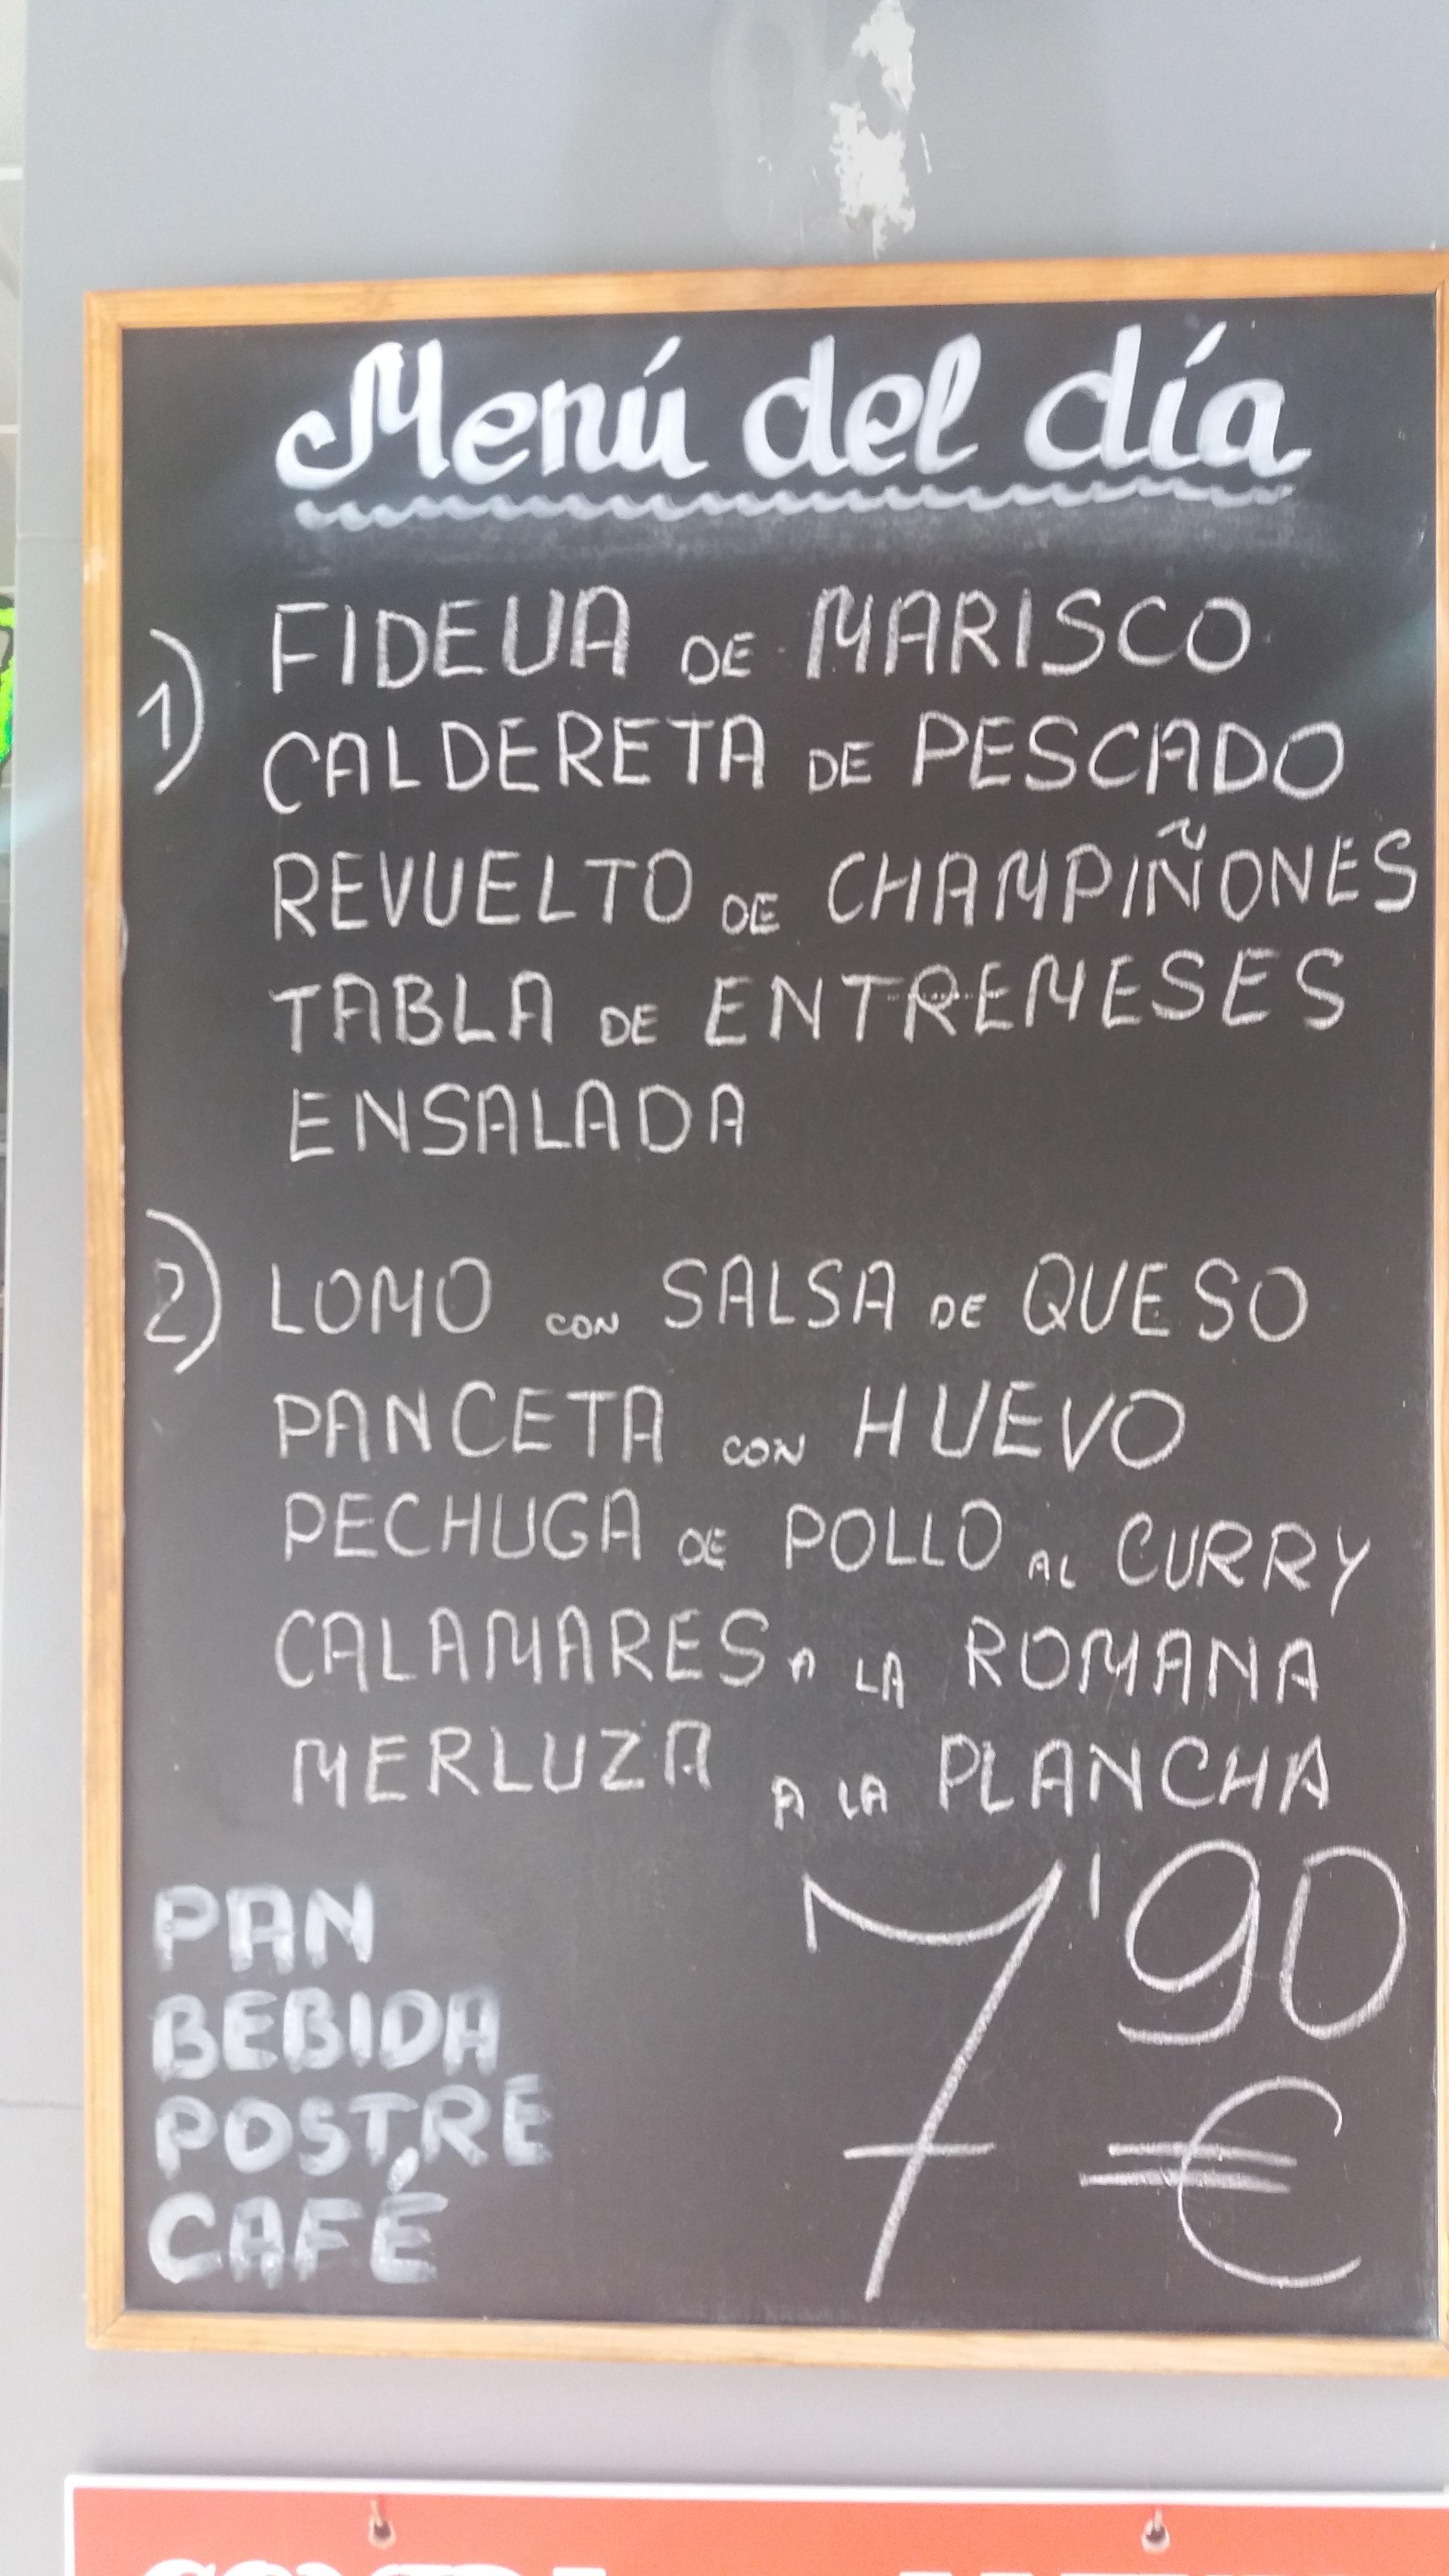 Menú del día
1) FIDEUA DE MARISCO
CALDERETA DE PESCADO
REVUELTO DE CHAMPIÑONES
TABLA DE ENTREMESES
ENSALADA
2) LOMO CON SALSA DE QUESO
PANCETA CON HUEVO
PECHUGA DE POLLO AL CURRY
CALAMARES A LA ROMANA
MERLUZA A LA PLANCHA
PAN
BEBIDA
POSTRE
CAFÉ
7'90
€